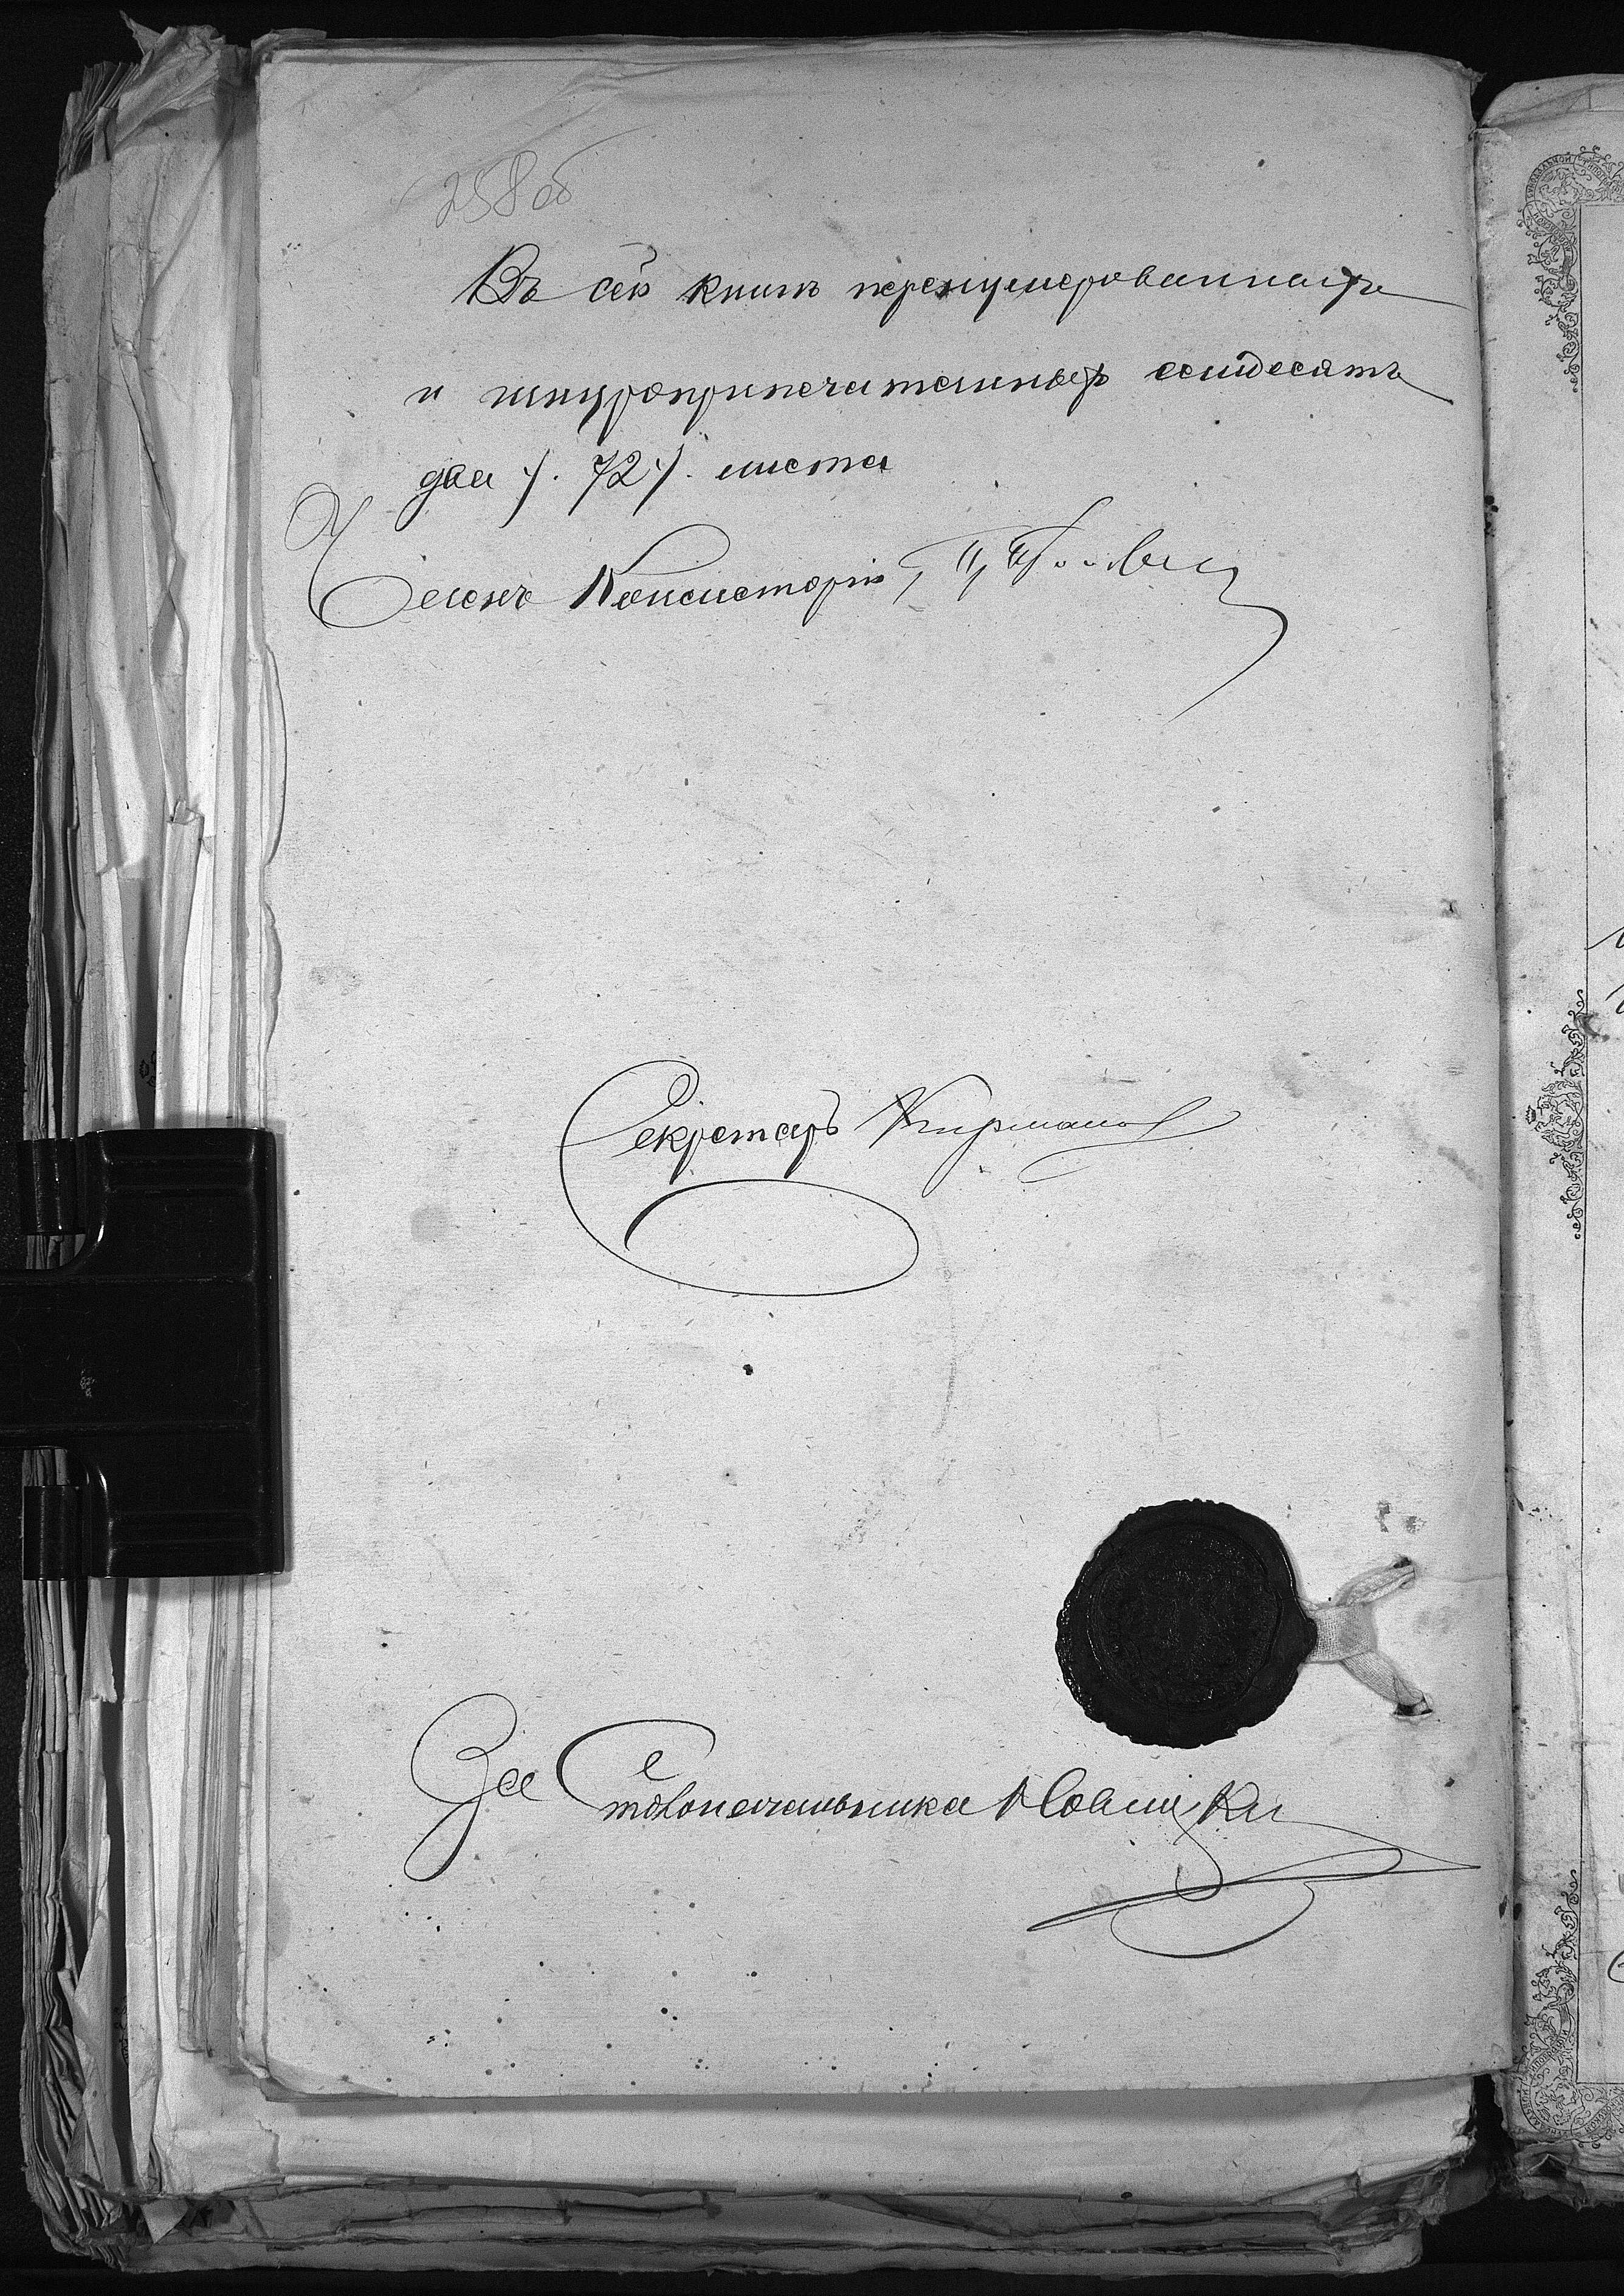 258 об
Въ сей книгѣ перенумерованныхъ
и шнуроприпечатанныхъ семдесятъ
два /. 72 /. листа
Членъ Консисторіи,
Секретарь
За Столоначальника Новицкій